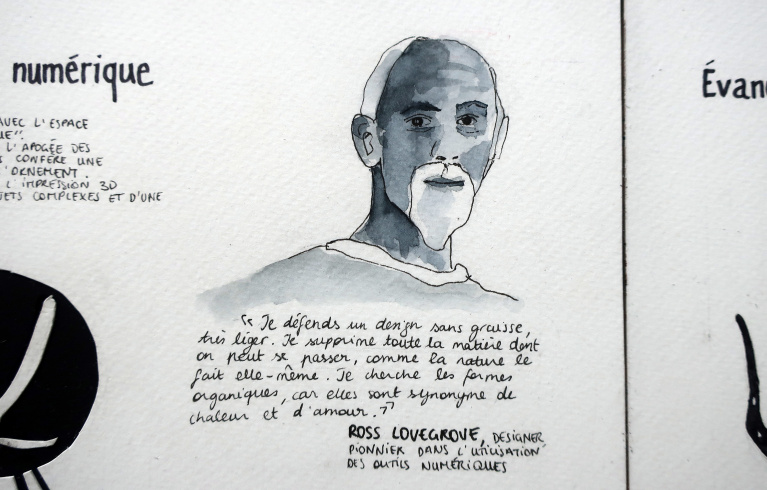 numérique
AVEC L'ESPACE
UE".
L'APOGÉE DES
CONFÈRE UNE
D'ORNEMENT.
L'IMPRESSION 3D
JETS COMPLEXES ET D'UNE
Évan
“ Je défends un design sans graisse,
très léger. Je supprime toute la matière dont
on peut se passer, comme la nature le
fait elle-même. Je cherche les formes
organiques, car elles sont synonyme de
chaleur et d'amour. ”
ROSS LOVEGROVE, DESIGNER
PIONNIER DANS L'UTILISATION
DES OUTILS NUMÉRIQUES